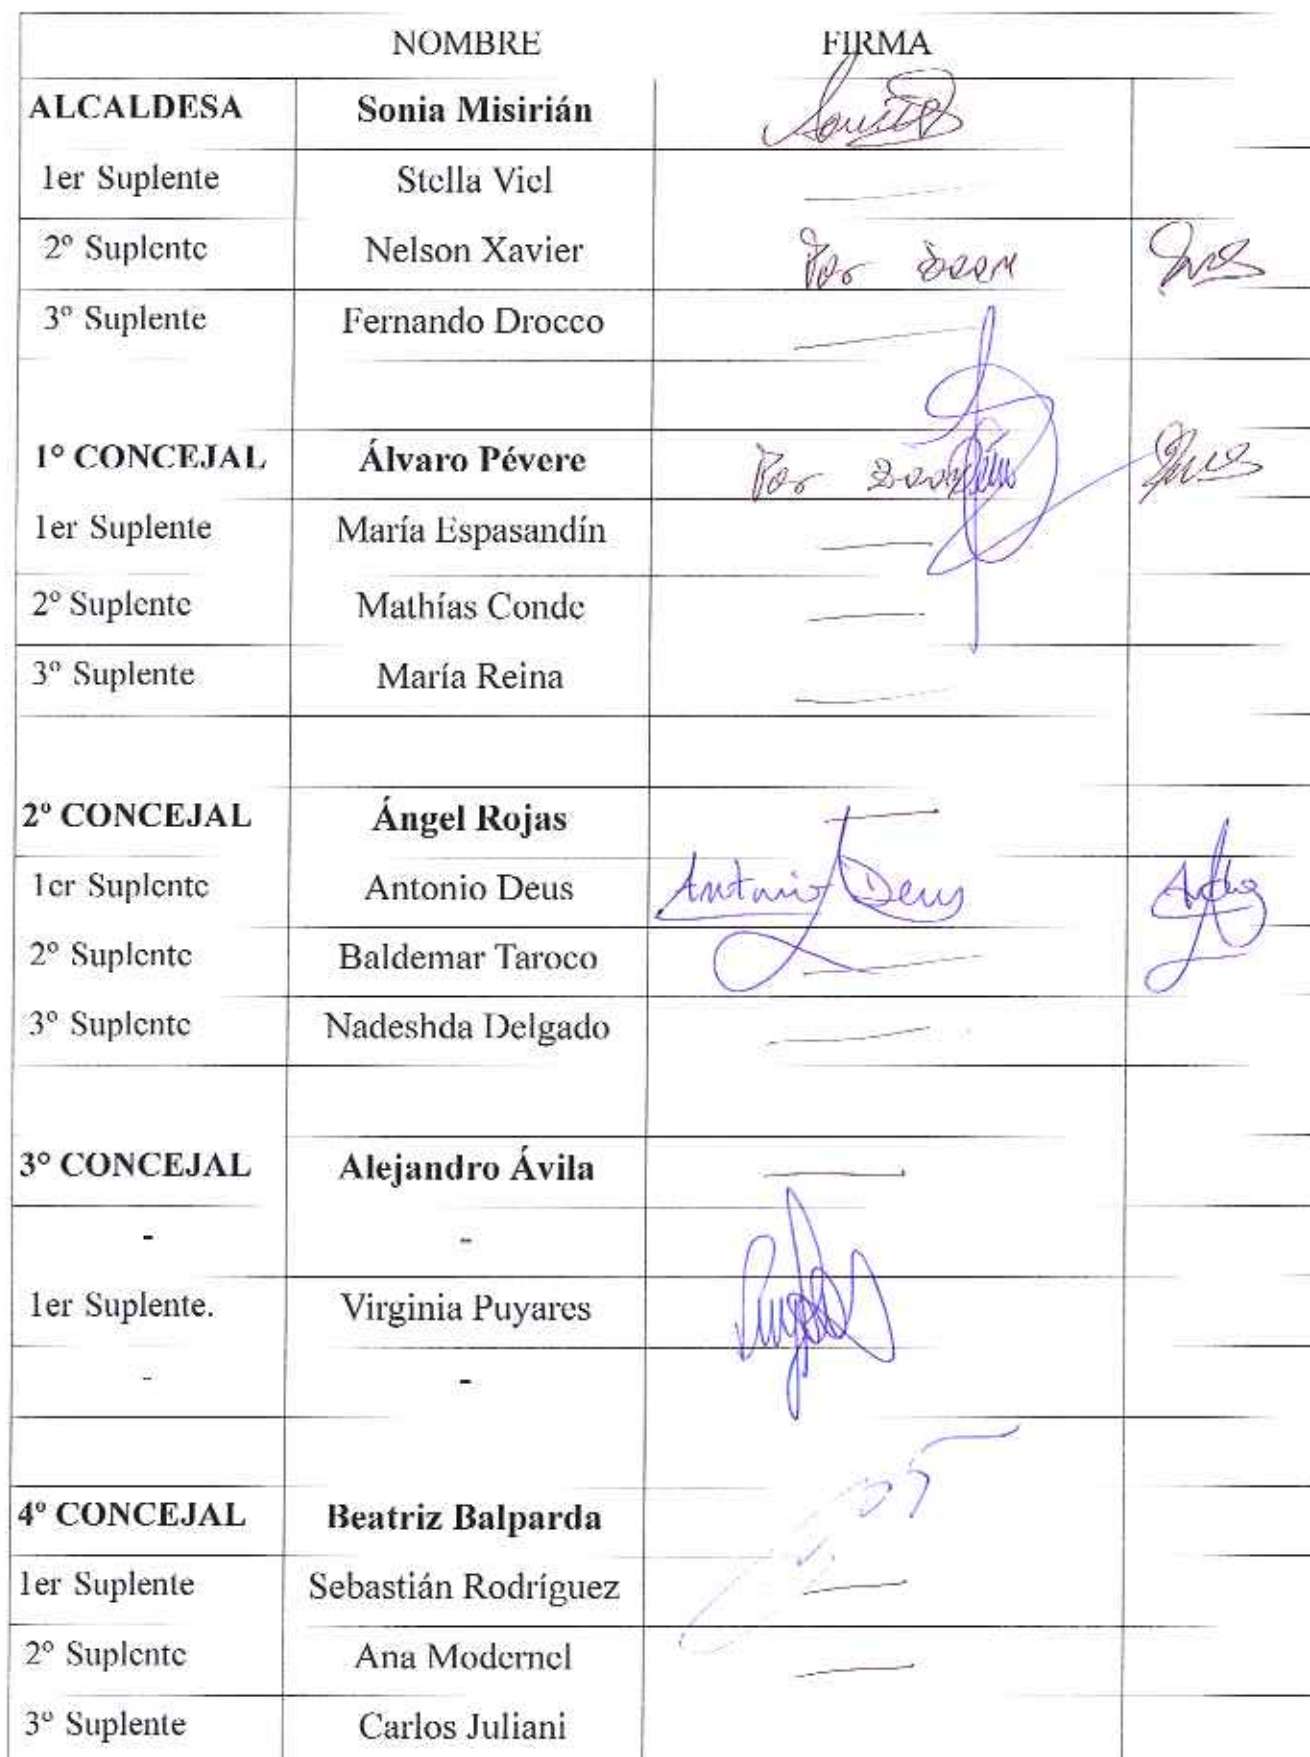 NOMBRE FIRMA
ALCALDESA Sonia Misirián
1er Suplente Stella Viel
2º Suplente Nelson Xavier Por Zoom
3º Suplente Fernando Drocco
1º CONCEJAL Álvaro Pévere Por Zoom
1er Suplente María Espasandín
2º Suplente Mathías Conde
3º Suplente María Reina
2º CONCEJAL Ángel Rojas
1er Suplente Antonio Deus Antonio Deus
2º Suplente Baldemar Taroco
3º Suplente Nadeshda Delgado
3º CONCEJAL Alejandro Ávila
- -
1er Suplente. Virginia Puyares
- -
4º CONCEJAL Beatriz Balparda
1er Suplente Sebastián Rodríguez
2º Suplente Ana Modernel
3º Suplente Carlos Juliani